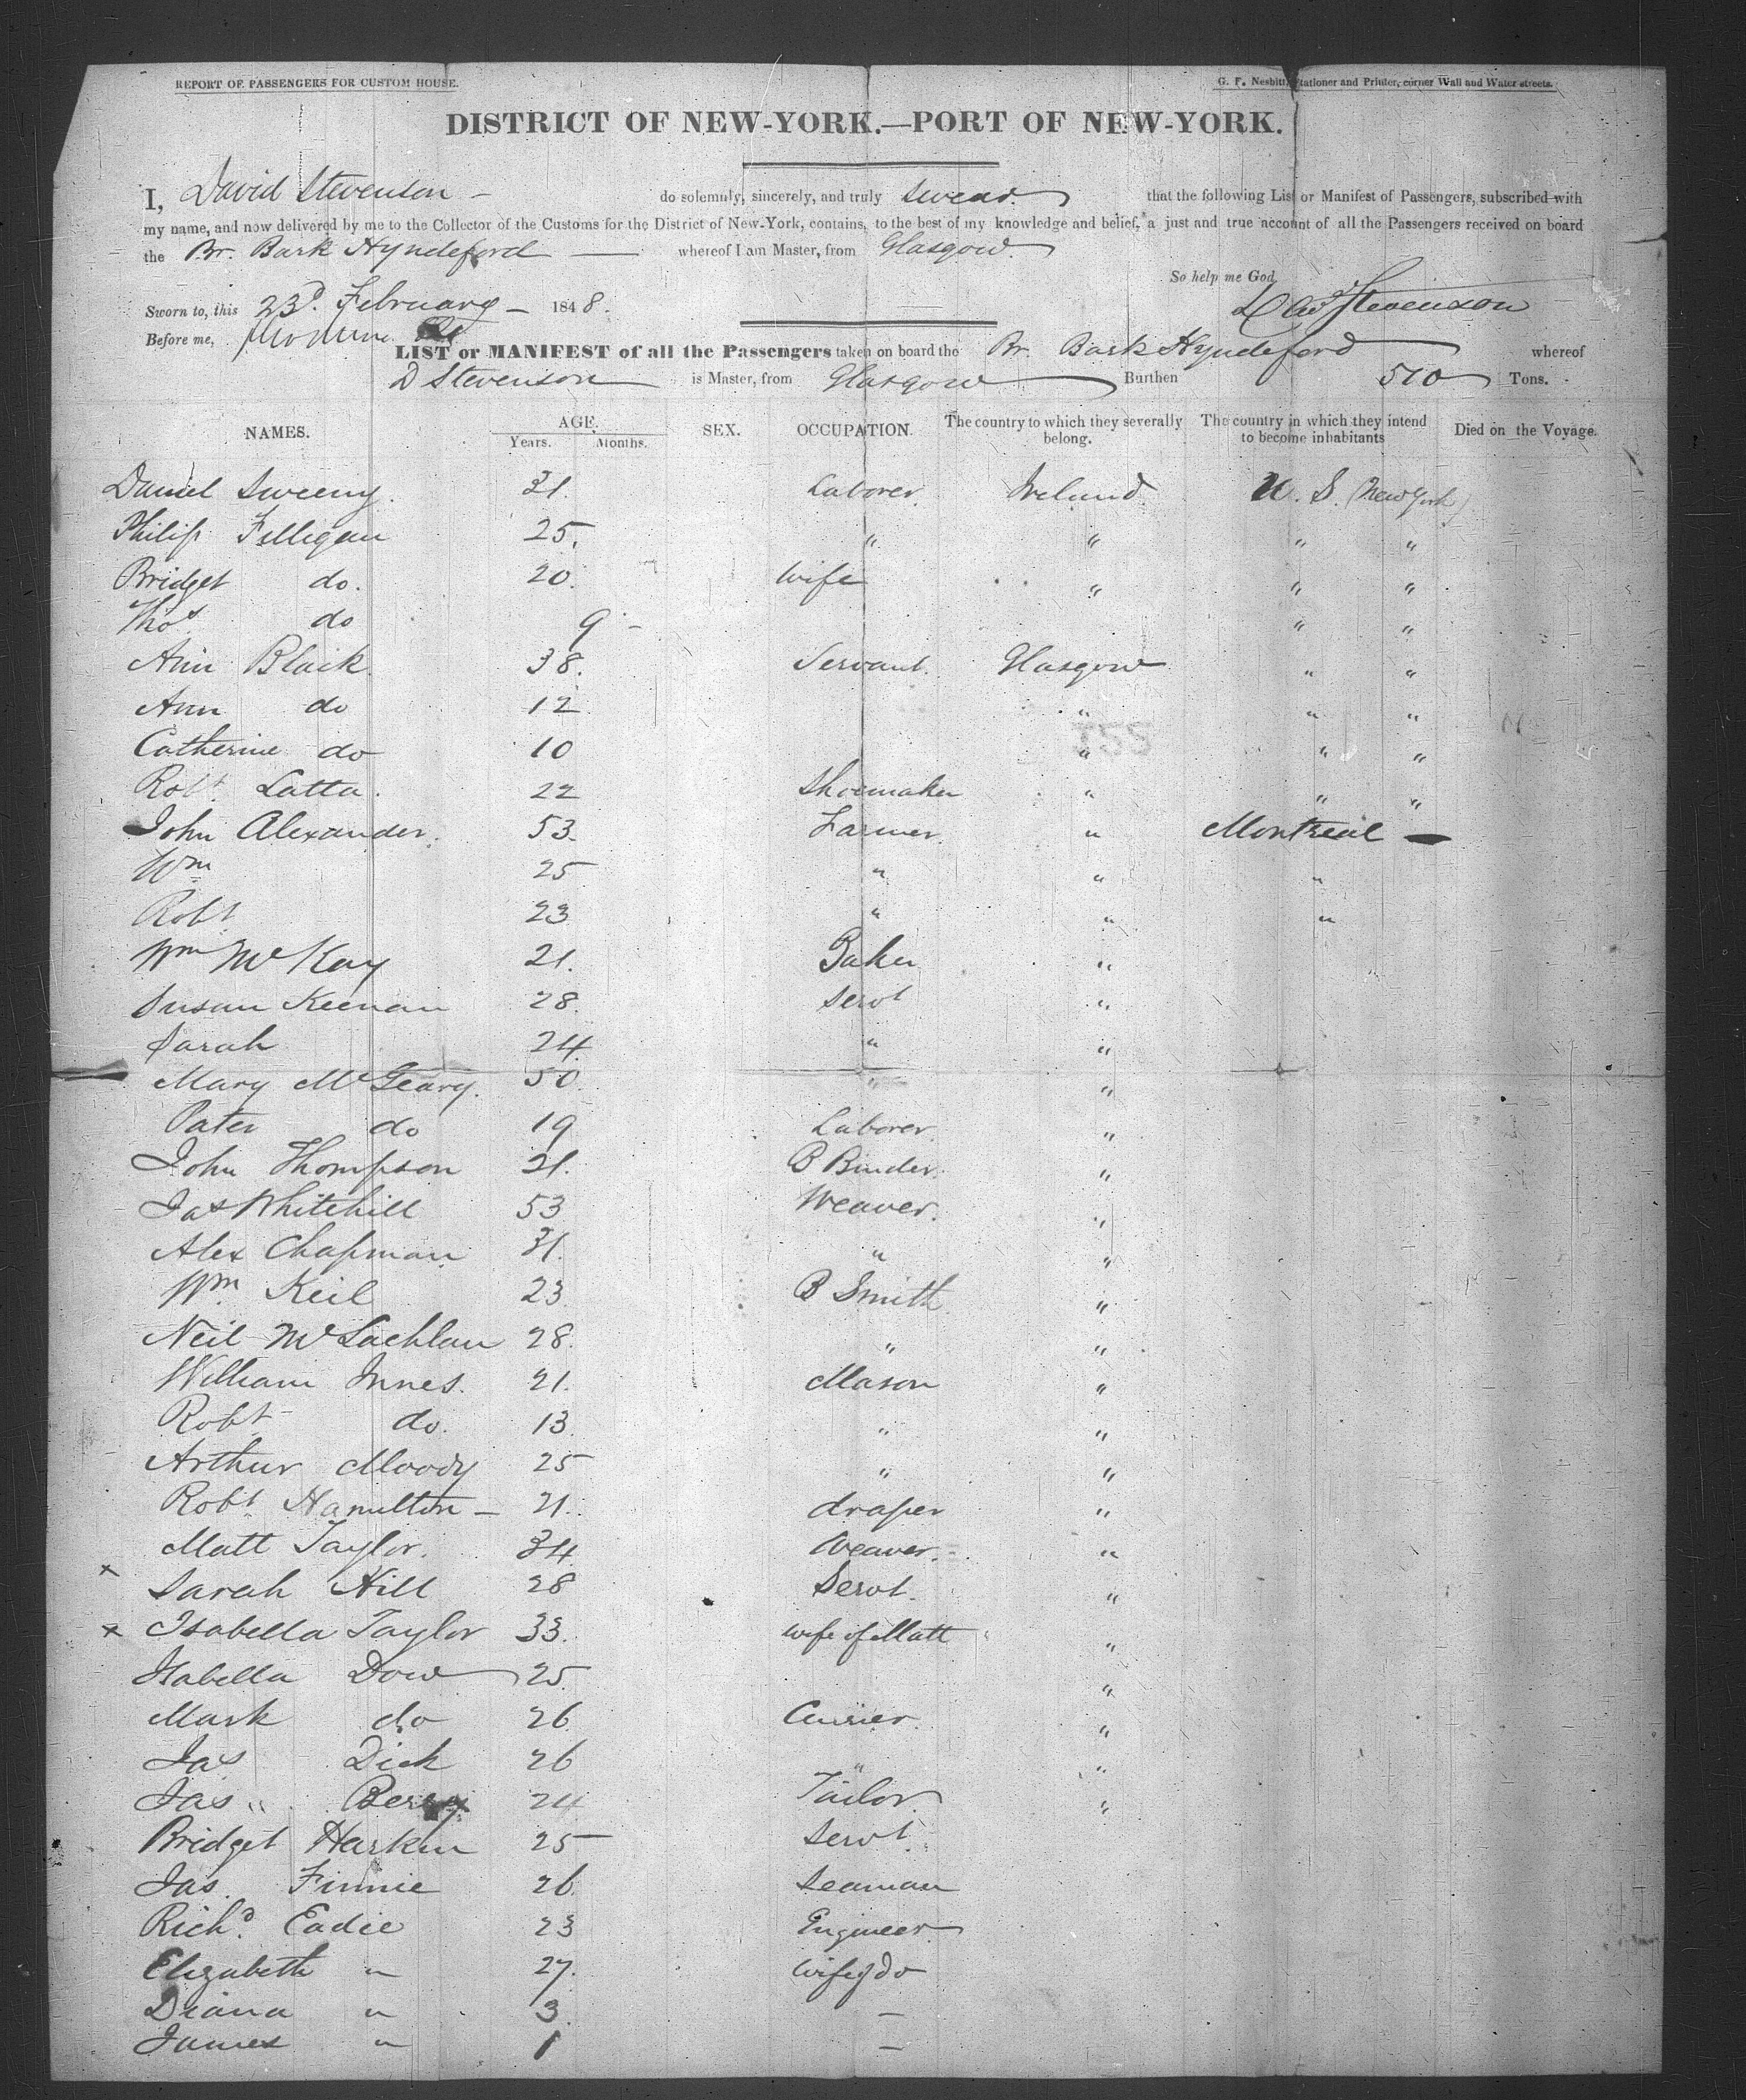 REPORT OF PASSENGERS FOR CUSTOM HOUSE.
G. F. Nesbitt, Stationer and Printer, corner Wall and Water streets.
DISTRICT OF NEW-YORK.—PORT OF NEW-YORK.
I, David Stevenson — do solemnly, sincerely, and truly swear that the following List or Manifest of Passengers, subscribed with
my name, and now delivered by me to the Collector of the Customs for the District of New-York, contains, to the best of my knowledge and belief, a just and true account of all the Passengers received on board
the Br. Bark Hyndeford — whereof I am Master, from Glasgow.
So help me God
Sworn to, this 23d. February — 1848. Dav Stevenson
Before me,
LIST or MANIFEST of all the Passengers taken on board the Br. Bark Hyndeford whereof
D Stevenson is Master, from Glasgow Burthen 510 Tons.
NAMES. AGE. Years. Months. SEX. OCCUPATION. The country to which they severally belong. The country in which they intend to become inhabitants Died on the Voyage.
Daniel Sweeny. 31. Laborer. Ireland U. S. (New York)
Philip Filligan 25. " " " "
Bridget do. 20. wife " " "
Thos do 9 - " "
Ann Black 38. Servant. Glasgow " "
Ann do 12 " " "
Catherine do 10 " " "
Robt. Latta. 22 Shoemaker " " "
John Alexander. 53. Farmer. " Montreal —
Wm 25 " " "
Robt 23 " " "
Wm McKay 21. Baker "
Susan Keenan 28. servt "
Sarah 24. " "
Mary McGeary. 50. " "
Peter do 19 Laborer. "
John Thompson 21. B Binder. "
Jas Whitehill 53 Weaver. "
Alex Chapman 31. " "
Wm. Keil 23 B Smith "
Neil McLachlan 28. " "
William Innes. 21. Mason "
Robt do. 13 " "
Arthur Moody 25 " "
Robt Hamilton — 21. draper "
Matt Taylor. 34 Weaver. "
x Sarah Hill 28 Servt. "
x Isabella Taylor 33. wife of Matt "
Isabella Dow 25. "
Mark do 26 Currier. "
Jas Dick 26 " "
Jas " Berry 24 Tailor. "
Bridget Harkin 25 Servt.
Jas. Finnie 26. Seaman
Richd. Eadie 23 Engineer.
Elizabeth " 27. wife of do
Diana " 3. —
James " 1 —